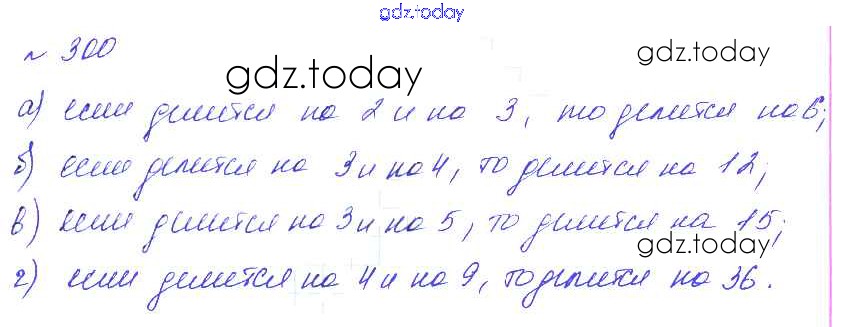 gdz.today
№ 300
gdz.today
gdz.today
а) если делится на 2 и на 3, то делится на 6;
б) если делится на 3 и на 4, то делится на 12;
в) если делится на 3 и на 5, то делится на 15;
gdz.today
г) если делится на 4 и на 9, то делится на 36.